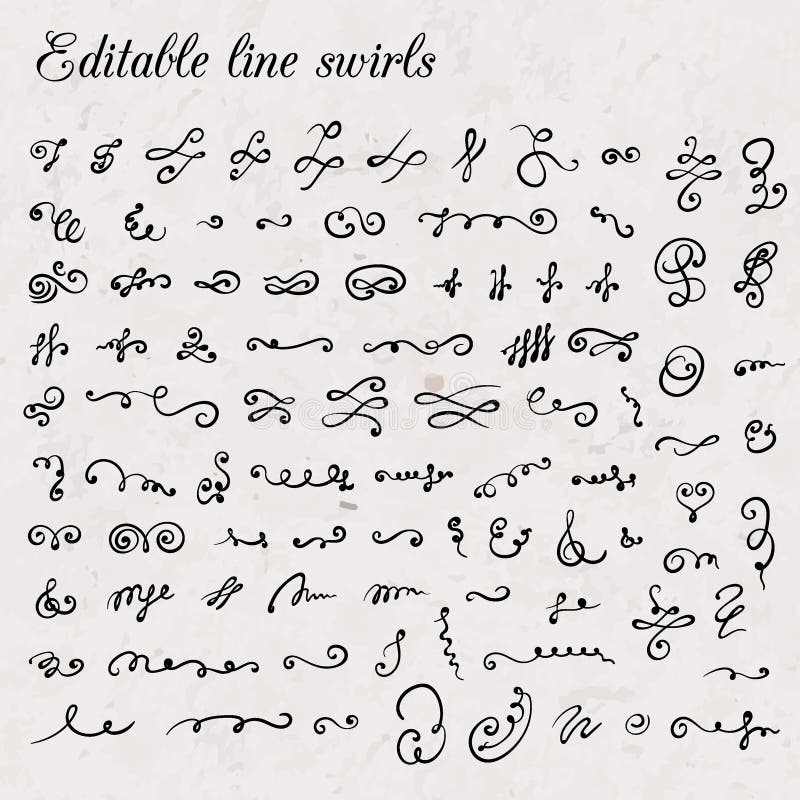 Editable line swirls